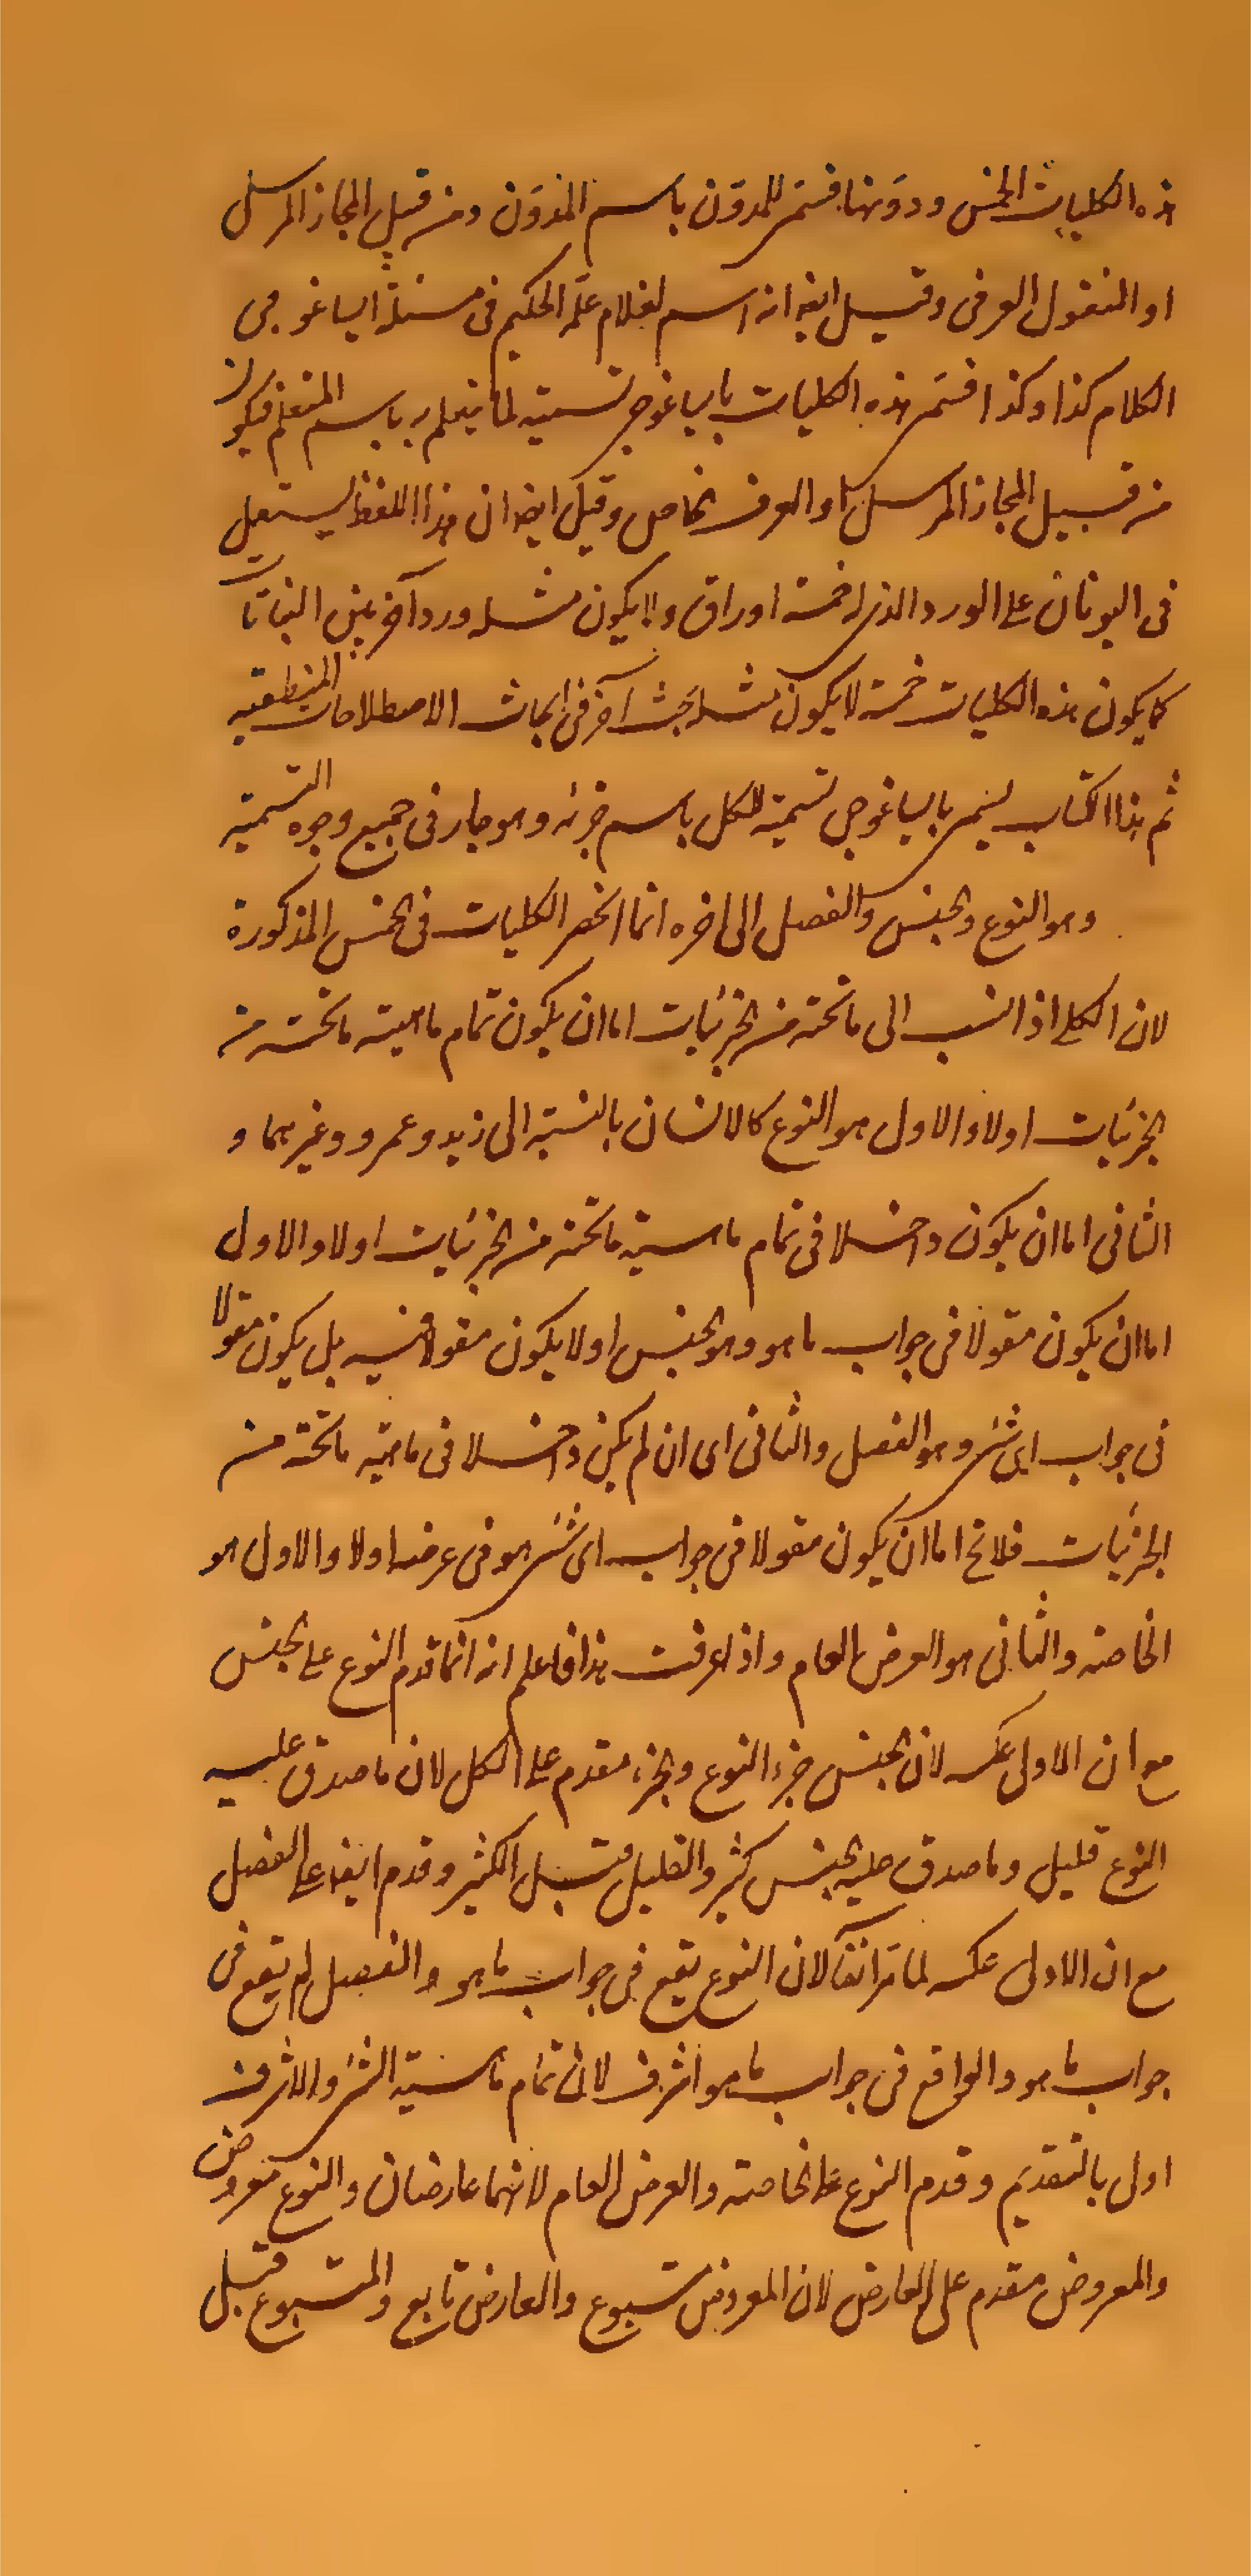 هذه الكليات الخمس ودونها فسمى للمدون باسم المدون ومن قبيل المجاز المرسل
او المنقول العرفى وقيل ايضا انه اسم لغلام علم الحكيم فى مسئلة ايساغوجى
الكلام كذا وكذا فسمى هذه الكليات بايساغوجى تسمية لما يتعلم به باسم المتعلم فيكون
من قبيل المجاز المرسل او العرف الخاص وقيل ايضا ان هذا اللفظ يستعمل
فى اليونان على الورد الذى له خمسة اوراق ولا يكون مثله ورد آخر بين النباتات
كما يكون هذه الكليات خمسة لا يكون مثله بحث آخر فى ابحاث الاصطلاحات المنطقية
ثم هذا الكتاب يسمى بايساغوجى تسمية للكل باسم جزئه وهو جار فى جميع وجوه التسمية
وهو النوع والجنس والفصل الى اخره انما انحصر الكليات فى الخمس المذكورة
لان الكلى اذا نسب الى ما تحته من الجزئيات اما ان يكون تمام ماهية ما تحته من
الجزئيات اولا والاول هو النوع كالانسان بالنسبة الى زيد وعمرو وغيرهما و
الثانى اما ان يكون داخلا فى تمام ماهية ما تحته من الجزئيات اولا والاول
اما ان يكون مقولا فى جواب ما هو وهو الجنس او لا يكون مقولا فيه بل يكون مقولا
فى جواب اى شئ وهو الفصل والثانى اى ان لم يكن داخلا فى ماهية ما تحته من
الجزئيات فلا يخ اما ان يكون مقولا فى جواب اى شئ هو فى عرضه اولا والاول هو
الخاصة والثانى هو العرض العام واذا عرفت هذا فاعلم انه انما قدم النوع على الجنس
مع ان الاولى عكسه لان الجنس جزء النوع والجزء مقدم على الكل لان ما صدق عليه
النوع قليل وما صدق عليه الجنس كثير والقليل قبل الكثير وقدم ايضا على الفصل
مع ان الاولى عكسه لما مر انفا لان النوع يقع فى جواب ما هو والفصل لم يقع فى
جواب ما هو والواقع فى جواب ما هو اشرف لانه تمام ماهية الشئ والاشرف
اولى بالتقديم وقدم النوع على الخاصة والعرض العام لانهما عارضان والنوع معروض
والمعروض مقدم على العارض لان المعروض متبوع والعارض تابع والمتبوع قبل